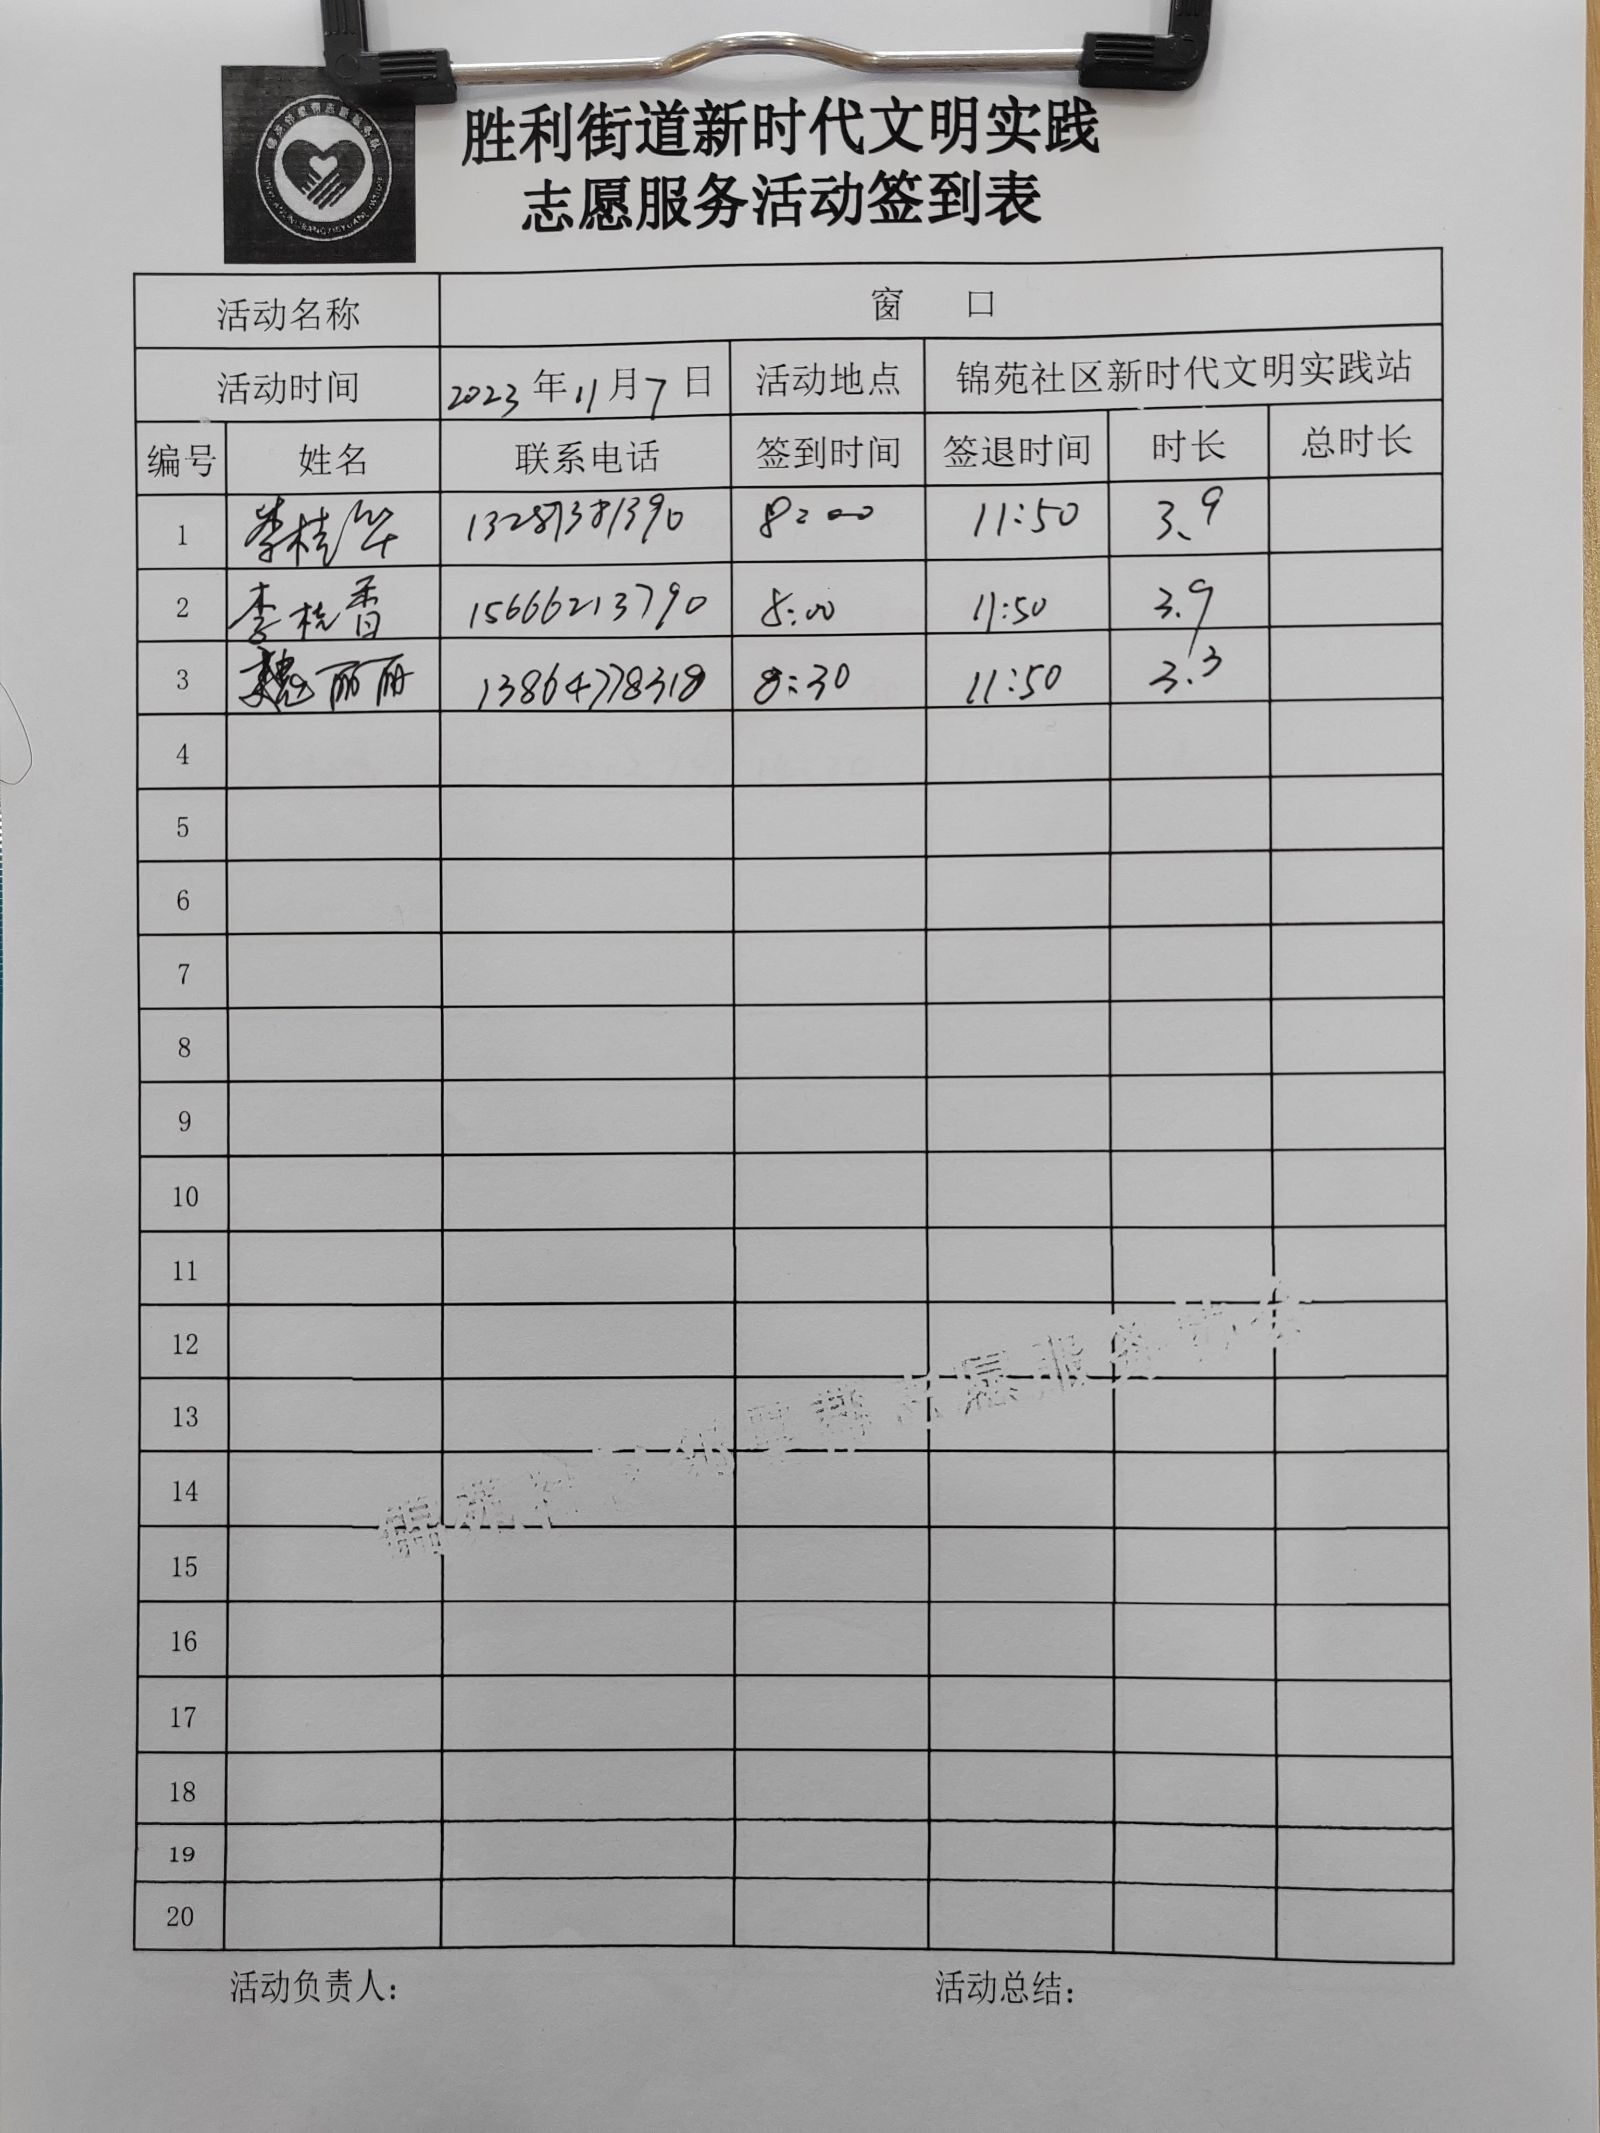 胜利街道新时代文明实践
志愿服务活动签到表
活动名称 窗 口
活动时间 2023年11月7日 活动地点 锦苑社区新时代文明实践站
编号 姓名 联系电话 签到时间 签退时间 时长 总时长
1 李桂华 13287381390 8:00 11:50 3.9
2 李桂香 15666213790 8:00 11:50 3.9
3 魏丽丽 13864778318 8:30 11:50 3.3
4
5
6
7
8
9
10
11
12
13
14
15
16
17
18
19
20
活动负责人: 活动总结: